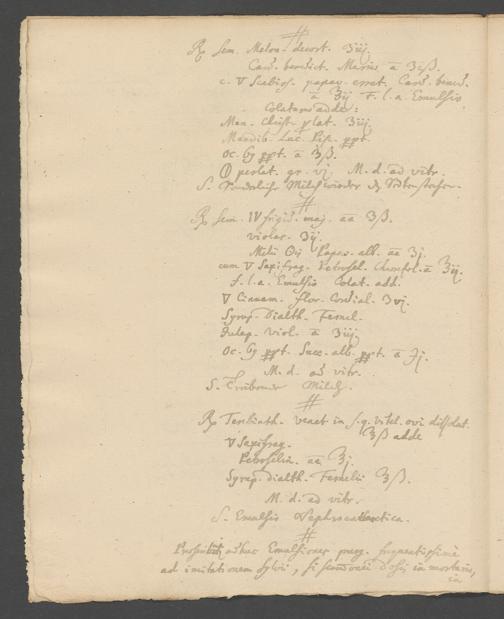 #
℞ Sem. Melon. decort. ʒiij.
Card. benedict. Mariae ā ʒiß.
c. ▽ Scabios. papav. errat. Card. bened.
ā ℥ij F. l. a. Emulsio
Colatur adde:
Man. Christ. perlat. ʒiij.
Mandib. Luc. Pisc. ppt.
Oc. 69 ppt. ā ʒß.
perlat. gr. vj. M. d. ad vitr.
S. Milch wieder das
#
℞ Sem. IV frigid. maj. āā ʒß.
violar. ʒij.
Papav. alb. āā ʒj.
cum ▽ Saxifrag. Petrosel. ā ℥ij.
f. l. a. Emulsio Colat. add.
▽ Cinnam. flor. Cordial. ʒvj.
Syrup. Dialth. Fernel.
Julap. viol. ā ʒiij.
Oc. 69 ppt. Succ. alb. ppt. ā ℈j.
M. d. ad vitr.
S. Milch.
#
℞ Terebinth. venet in s. q. vitel. ovi dissolut.
ʒß adde
▽ Saxifrag.
Petroselin. āā ℥j.
Syrup. Dialth. Fernelii ℥ß.
M. d. ad vitr.
S. Emulsio Nephrocatharctica.
#
adhuc Emulsiones purg. frequentissime
ad imitationem Sylvii, si in mortario,
in